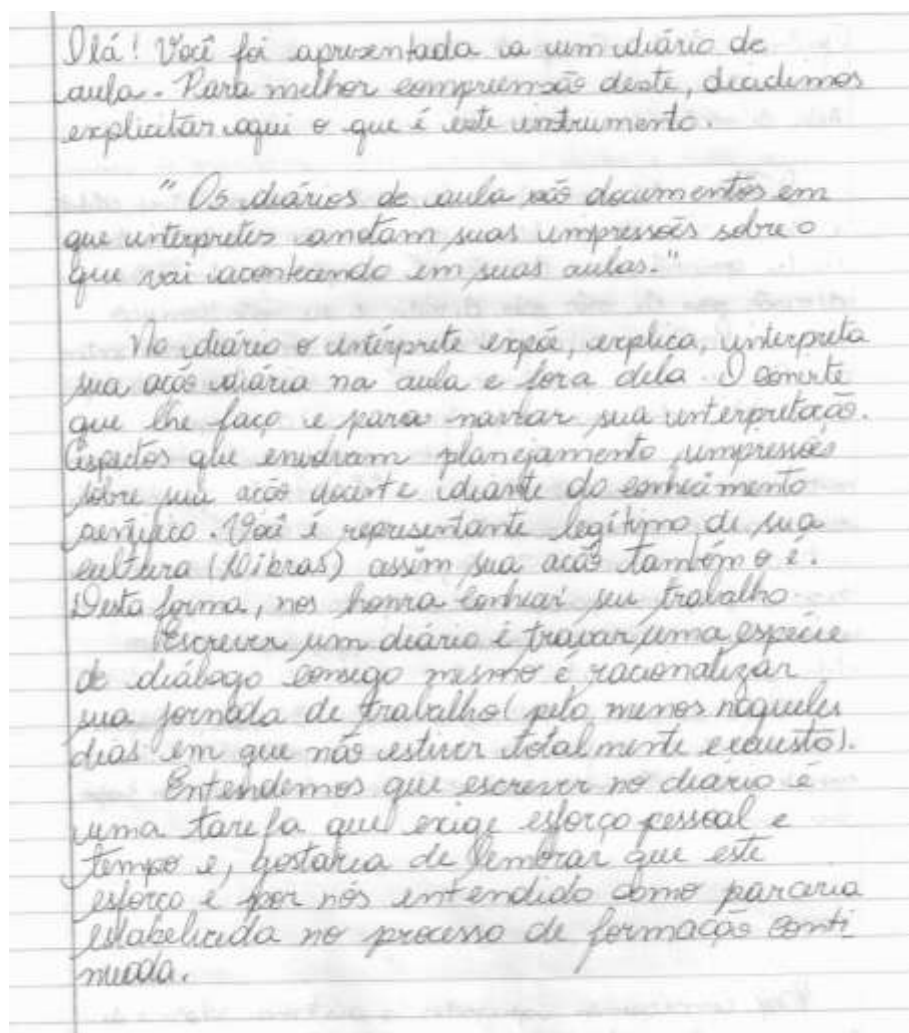 Olá! Você foi apresentada a um diário de
aula. Para melhor compreensão deste, decidimos
explicitar aqui o que é este instrumento.
"Os diários de aula são documentos em
que interpretes anotam suas impressões sobre o
que vai acontecendo em suas aulas."
No diário o intérprete expõe, explica, interpreta
sua ação diária na aula e fora dela. O convite
que lhe faço é para narrar sua interpretação.
Aspectos que envolvam planejamento, impressões
sobre sua ação docente diante do conhecimento
científico. Você é representante legítimo de sua
cultura (Libras) assim sua ação também o é.
Desta forma, nos honra conhecer seu trabalho
Escrever um diário é travar uma espécie
de diálogo consigo mesmo é racionalizar
sua jornada de trabalho (pelo menos naqueles
dias em que não estiver totalmente exausto).
Entendemos que escrever no diário é
uma tarefa que exige esforço pessoal e
tempo e, gostaria de lembrar que este
esforço é por nós entendido como parceria
estabelecida no processo de formação conti
nuada.